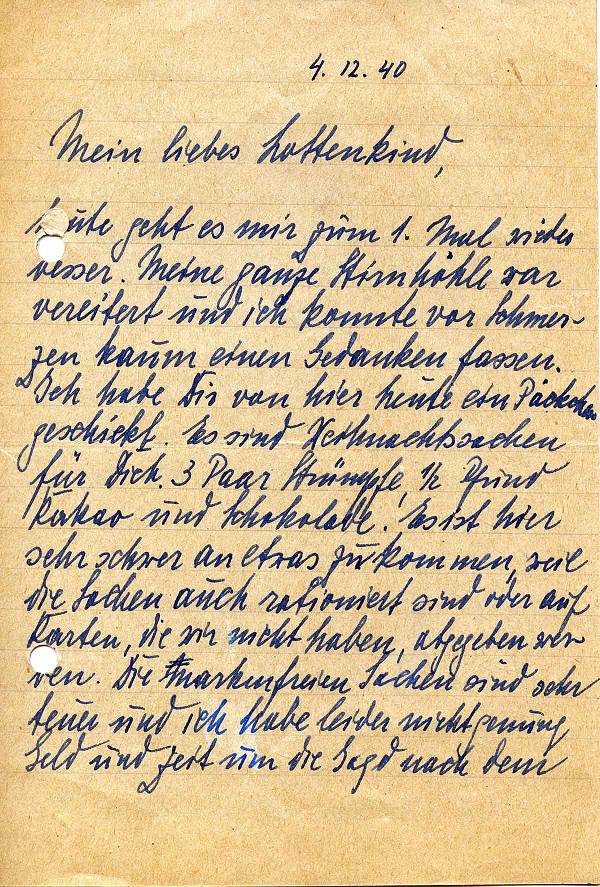 4. 12. 40
Mein liebes Lottenkind,
heute geht es mir zum 1. Mal wieder
besser. Meine ganze Stirnhöhle war
vereitert und ich konnte vor Schmer-
zen kaum einen Gedanken fassen.
Ich habe Dir von hier heute ein Päckchen
geschickt. Es sind Weihnachtssachen
für Dich. 3 Paar Strümpfe, ½ Pfund
Kakao und Schokolade! Es ist hier
sehr schwer an etwas zu kommen, weil
die Sachen auch rationiert sind oder auf
Karten, die wir nicht haben, abgegeben wer-
den. Die markenfreien Sachen sind sehr
teuer und ich habe leider nicht genung
Geld und Zeit um die Jagd nach dem